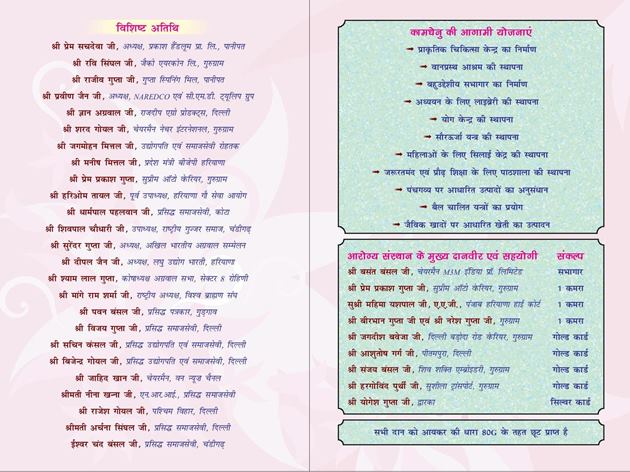 विशिष्ट अतिथि
श्री प्रेम सचदेवा जी, अध्यक्ष, प्रकाश हैंडलूम प्रा. लि., पानीपत
श्री रवि सिंघल जी, जैको एयरकोन लि., गुरुग्राम
श्री राजीव गुप्ता जी, गुप्ता स्पिनिंग मिल, पानीपत
श्री प्रवीण जैन जी, अध्यक्ष, NAREDCO एवं सी.एम.डी. ट्यूलिप ग्रुप
श्री ज्ञान अग्रवाल जी, राजदीप एग्रो प्रोडक्ट्स, दिल्ली
श्री शरद गोयल जी, चेयरमैन नेचर इंटरनेशनल, गुरुग्राम
श्री जगमोहन मित्तल जी, उद्योगपति एवं समाजसेवी रोहतक
श्री मनीष मित्तल जी, प्रदेश मंत्री बीजेपी हरियाणा
श्री प्रेम प्रकाश गुप्ता, सुप्रीम ऑटो केरियर, गुरुग्राम
श्री हरिओम तायल जी, पूर्व उपाध्यक्ष, हरियाणा गौ सेवा आयोग
श्री धार्मपाल पहलवान जी, प्रसिद्ध समाजसेवी, कोटा
श्री शिवपाल चौधारी जी, उपाध्यक्ष, राष्ट्रीय गुज्जर समाज, चंडीगढ़
श्री सुरेंदर गुप्ता जी, अध्यक्ष, अखिल भारतीय अग्रवाल सम्मेलन
श्री दीपल जैन जी, अध्यक्ष, लघु उद्योग भारती, हरियाणा
श्री श्याम लाल गुप्ता, कोषाध्यक्ष अग्रवाल सभा, सेक्टर 8 रोहिणी
श्री मांगे राम शर्मा जी, राष्ट्रीय अध्यक्ष, विश्व ब्राह्मण संघ
श्री पवन बंसल जी, प्रसिद्ध पत्रकार, गुड़गाव
श्री विजय गुप्ता जी, प्रसिद्ध समाजसेवी, दिल्ली
श्री सचिन कंसल जी, प्रसिद्ध उद्योगपति एवं समाजसेवी, दिल्ली
श्री बिजेन्द्र गोयल जी, प्रसिद्ध उद्योगपति एवं समाजसेवी, दिल्ली
श्री जाहिद खान जी, चेयरमैन, वन न्यूज चैनल
श्रीमती नीना खन्ना जी, एन.आर.आई., प्रसिद्ध समाजसेवी
श्री राजेश गोयल जी, पश्चिम विहार, दिल्ली
श्रीमती अर्चना सिंघल जी, प्रसिद्ध समाजसेवी, दिल्ली
ईश्वर चंद बंसल जी, प्रसिद्ध समाजसेवी, चंडीगढ़
कामधेनु की आगामी योजनाएं
➞ प्राकृतिक चिकित्सा केन्द्र का निर्माण
➞ वानप्रस्थ आश्रम की स्थापना
➞ बहुउद्देशीय सभागार का निर्माण
➞ अध्ययन के लिए लाइब्रेरी की स्थापना
➞ योग केन्द्र की स्थापना
➞ सौरऊर्जा यन्त्र की स्थापना
➞ महिलाओं के लिए सिलाई केंद्र की स्थापना
➞ जरूरतमंद एवं प्रौढ़ शिक्षा के लिए पाठशाला की स्थापना
➞ पंचगव्य पर आधारित उत्पादों का अनुसंधान
➞ बैल चालित यन्त्रों का प्रयोग
➞ जैविक खादों पर आधारित खेती का उत्पादन
आरोग्य संस्थान के मुख्य दानवीर एवं सहयोगी संकल्प
श्री बसंत बंसल जी, चेयरमैन M3M इंडिया प्रॉ. लिमिटेड सभागार
श्री प्रेम प्रकाश गुप्ता जी, सुप्रीम ऑटो केरियर, गुरुग्राम 1 कमरा
सुश्री महिमा यशपाल जी, ए.ए.जी., पंजाब हरियाणा हाई कोर्ट 1 कमरा
श्री वीरभान गुप्ता जी एवं श्री नरेश गुप्ता जी, गुरुग्राम 1 कमरा
श्री जगदीश बवेजा जी, दिल्ली बड़ोदा रोड केरियर, गुरुग्राम गोल्ड कार्ड
श्री आशुतोष गर्ग जी, पीतमपुरा, दिल्ली गोल्ड कार्ड
श्री संजय बंसल जी, शिव शक्ति एम्ब्रोइडरी, गुरुग्राम गोल्ड कार्ड
श्री हरगोविंद पुर्थी जी, सुशीला ट्रांसपोर्ट, गुरुग्राम गोल्ड कार्ड
श्री योगेश गुप्ता जी, द्वारका सिल्वर कार्ड
सभी दान को आयकर की धारा 80G के तहत छूट प्राप्त है